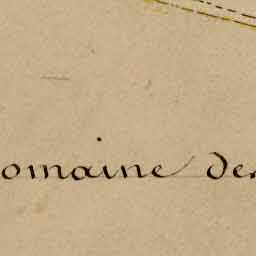 omaine des